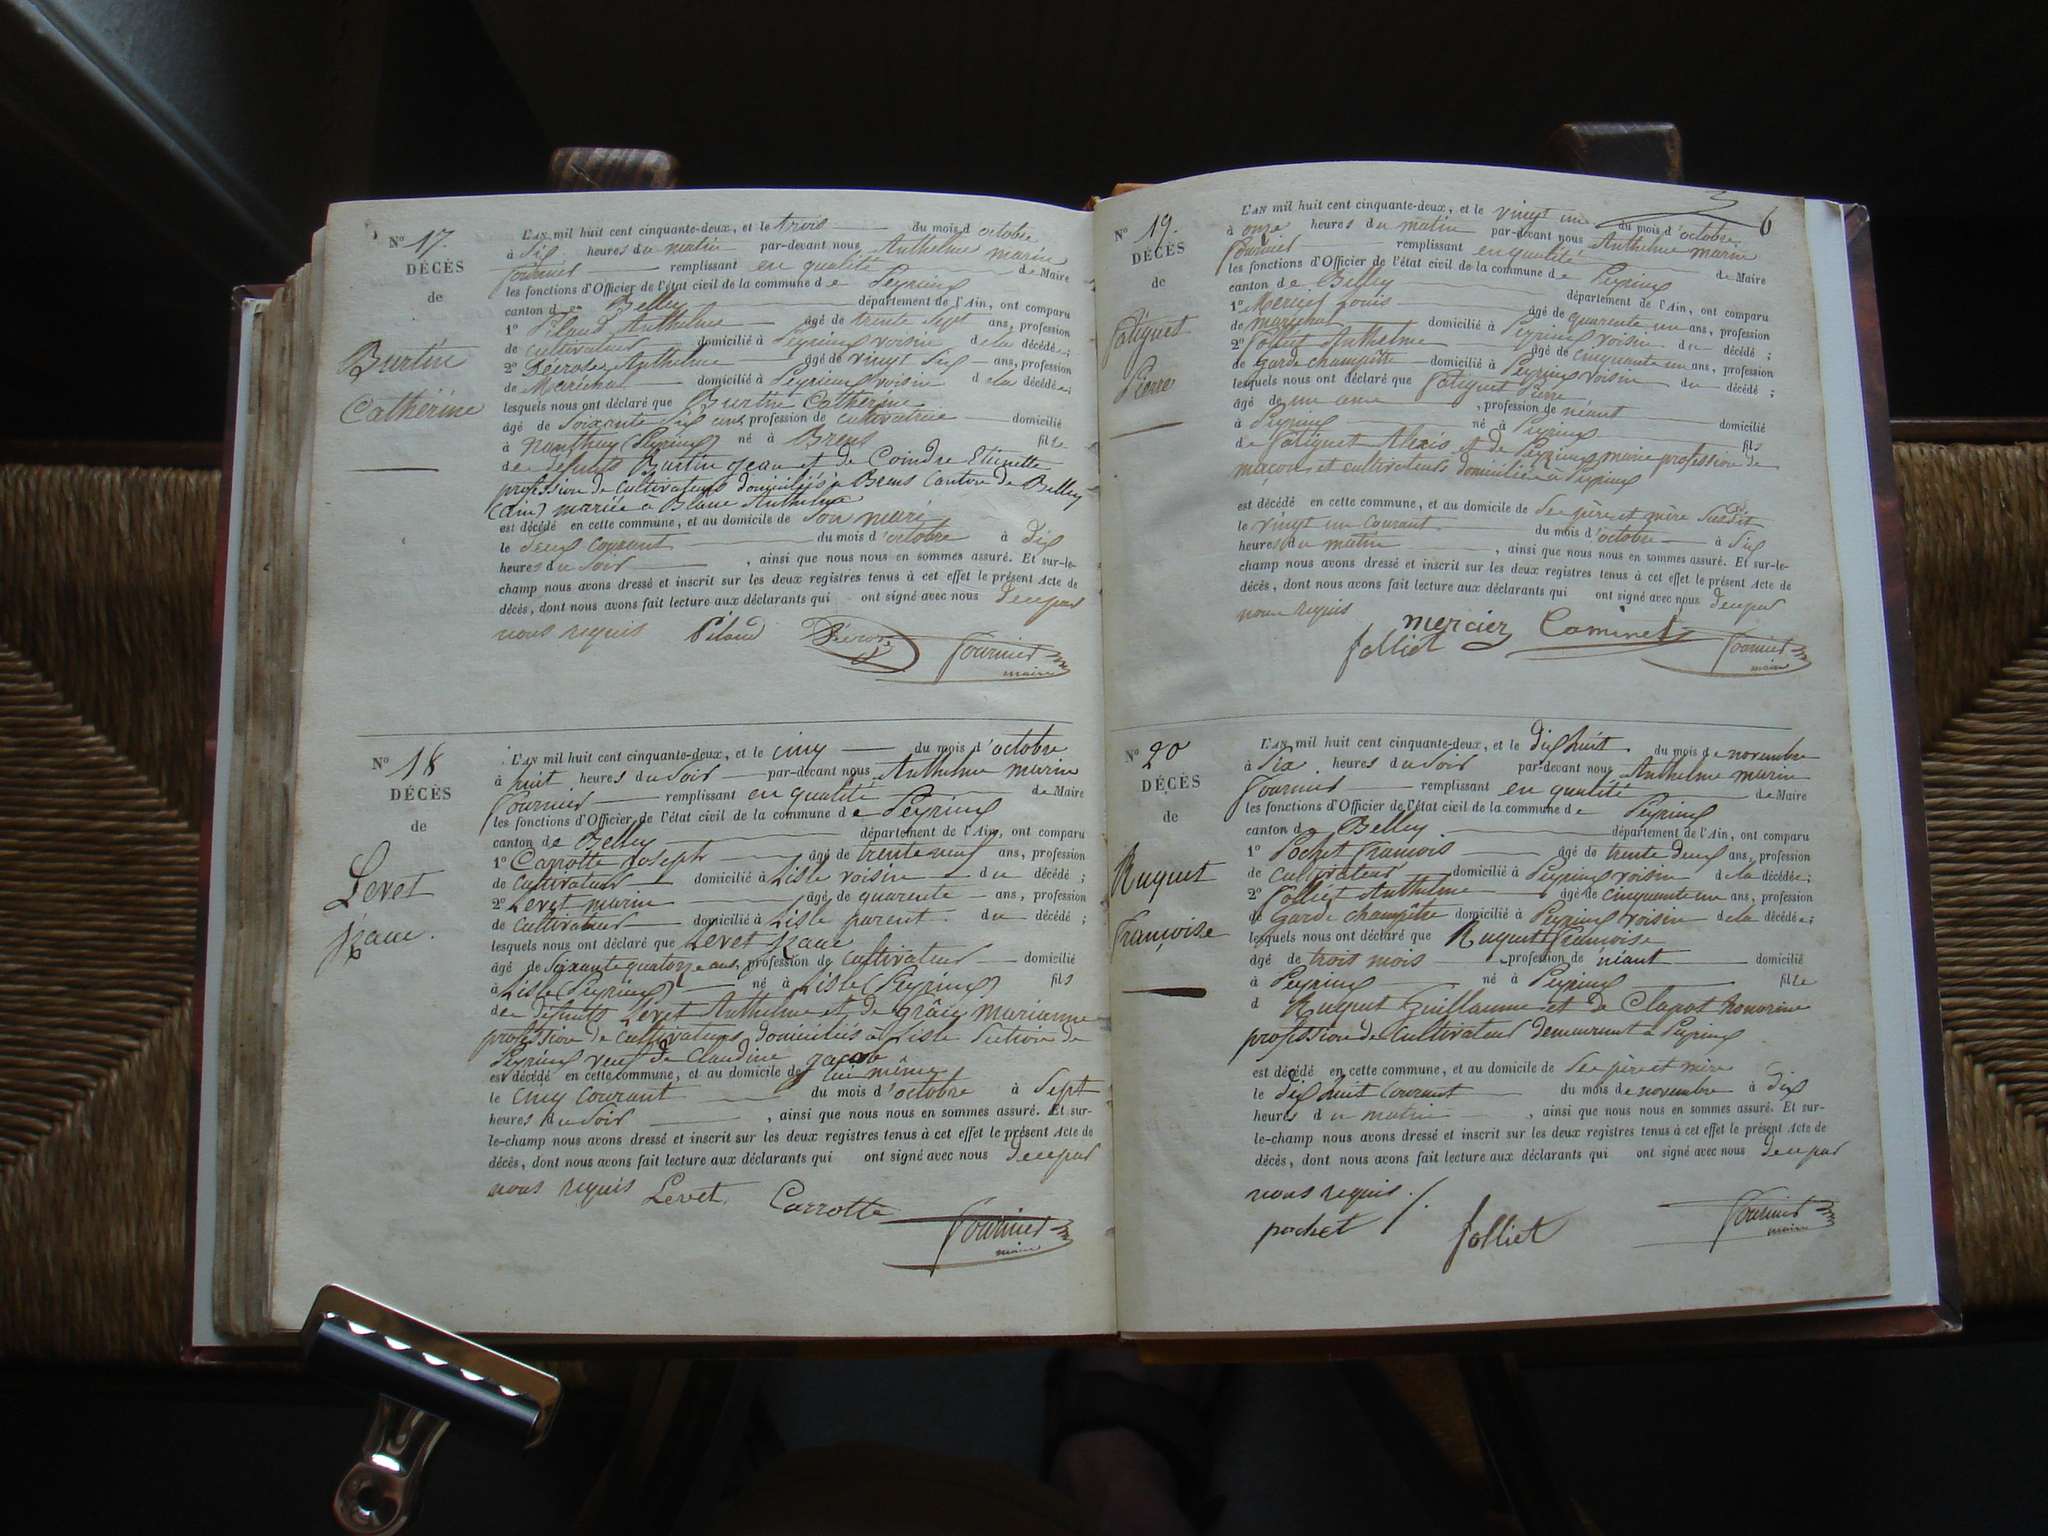 N° 17.
DÉCÈS
de
Burtin
Catherine
L'AN mil huit cent cinquante-deux, et le trois du mois d'octobre
à dix heures du matin par-devant nous Anthelme marin
Fournier remplissant en qualité de Maire
les fonctions d'Officier de l'état civil de la commune de Peyrieux
canton de Belley département de l'Ain, ont comparu
1° Pilaud Anthelme âgé de trente sept ans, profession
de cultivateur domicilié à Peyrieux voisin de la décédée;
2° Anthelme âgé de vingt six ans, profession
de Maréchal domicilié à Peyrieux voisin de la décédée;
lesquels nous ont déclaré que Burtin Catherine
âgé de soixante six ans, profession de cultivatrice domicilié
à Nanthuy (Peyrieux) né à Brens fille
de défunts Burtin Jean et de Coindre Etiennette
profession de cultivateurs domiciliés à Brens Canton de Belley
(ain) mariée à Anthelme
est décédé en cette commune, et au domicile de son mari
le deux courant du mois d'octobre à dix
heures du soir , ainsi que nous nous en sommes assuré. Et sur-le-
champ nous avons dressé et inscrit sur les deux registres tenus à cet effet le présent Acte de
décès, dont nous avons fait lecture aux déclarants qui ont signé avec nous de ce par
nous requis Pilaud Fournier
maire
N° 18
DÉCÈS
de
Levet
Isaac.
L'AN mil huit cent cinquante-deux, et le cinq du mois d'octobre
à huit heures du soir par-devant nous Anthelme marin
Fournier remplissant en qualité de Maire
les fonctions d'Officier de l'état civil de la commune de Peyrieux
canton de Belley département de l'Ain, ont comparu
1° Carrotte Joseph âgé de trente neuf ans, profession
de cultivateur domicilié à Lisle voisin du décédé;
2° Levet marin âgé de quarente ans, profession
de cultivateur domicilié à Lisle parent du décédé;
lesquels nous ont déclaré que Levet Isaac
âgé de soixante quatorze ans, profession de cultivateur domicilié
à Lisle (Peyrieux) né à Lisle (Peyrieux) fils
de défunts Levet Anthelme et de marianne
profession de cultivateurs domiciliés à Lisle Section de
Peyrieux veuf de Claudine
est décédé en cette commune, et au domicile de lui même
le cinq courant du mois d'octobre à sept
heures du soir , ainsi que nous nous en sommes assuré. Et sur-
le-champ nous avons dressé et inscrit sur les deux registres tenus à cet effet le présent Acte de
décès, dont nous avons fait lecture aux déclarants qui ont signé avec nous de ce par
nous requis Levet Carrotte Fournier
maire
6
N° 19.
DÉCÈS
de
Pierre
L'AN mil huit cent cinquante-deux, et le vingt un du mois d'octobre
à onze heures du matin par-devant nous Anthelme marin
Fournier remplissant en qualité de Maire
les fonctions d'Officier de l'état civil de la commune de Peyrieux
canton de Belley département de l'Ain, ont comparu
1° Mercier Louis âgé de quarente un ans, profession
de maréchal domicilié à Peyrieux voisin du décédé;
2° Folliet Anthelme âgé de cinquante un ans, profession
de garde champêtre domicilié à Peyrieux voisin du décédé;
lesquels nous ont déclaré que Pierre
âgé de un ans , profession de néant domicilié
à Peyrieux né à Peyrieux fils
de Alexis et de Peyrieux marie profession de
maçon et cultivateurs domiciliés à Peyrieux
est décédé en cette commune, et au domicile de ses père et mère susdit
le vingt un courant du mois d'octobre à dix
heures du matin , ainsi que nous nous en sommes assuré. Et sur-le-
champ nous avons dressé et inscrit sur les deux registres tenus à cet effet le présent Acte de
décès, dont nous avons fait lecture aux déclarants qui ont signé avec nous de ce par
nous requis mercier Cominet
folliet Fournier
maire
N° 20
DÉCÈS
de
Ruguet
Françoise
L'AN mil huit cent cinquante-deux, et le dix huit du mois de novembre
à six heures du soir par-devant nous Anthelme marin
Fournier remplissant en qualité de Maire
les fonctions d'Officier de l'état civil de la commune de Peyrieux
canton de Belley département de l'Ain, ont comparu
1° Pochet François âgé de trente deux ans, profession
de cultivateur domicilié à Peyrieux voisin de la décédée;
2° Folliet Anthelme âgé de cinquante un ans, profession
de garde champêtre domicilié à Peyrieux voisin de la décédée;
lesquels nous ont déclaré que Ruguet Françoise
âgé de trois mois , profession de néant domicilié
à Peyrieux né à Peyrieux fille
d Ruguet Guillaume et de Clapot honorine
profession de cultivateur demeurant à Peyrieux
est décédé en cette commune, et au domicile de ses père et mère
le dix huit courant du mois de novembre à dix
heures du matin , ainsi que nous nous en sommes assuré. Et sur-
le-champ nous avons dressé et inscrit sur les deux registres tenus à cet effet le présent Acte de
décès, dont nous avons fait lecture aux déclarants qui ont signé avec nous de ce par
nous requis ./.
pochet folliet Fournier
maire